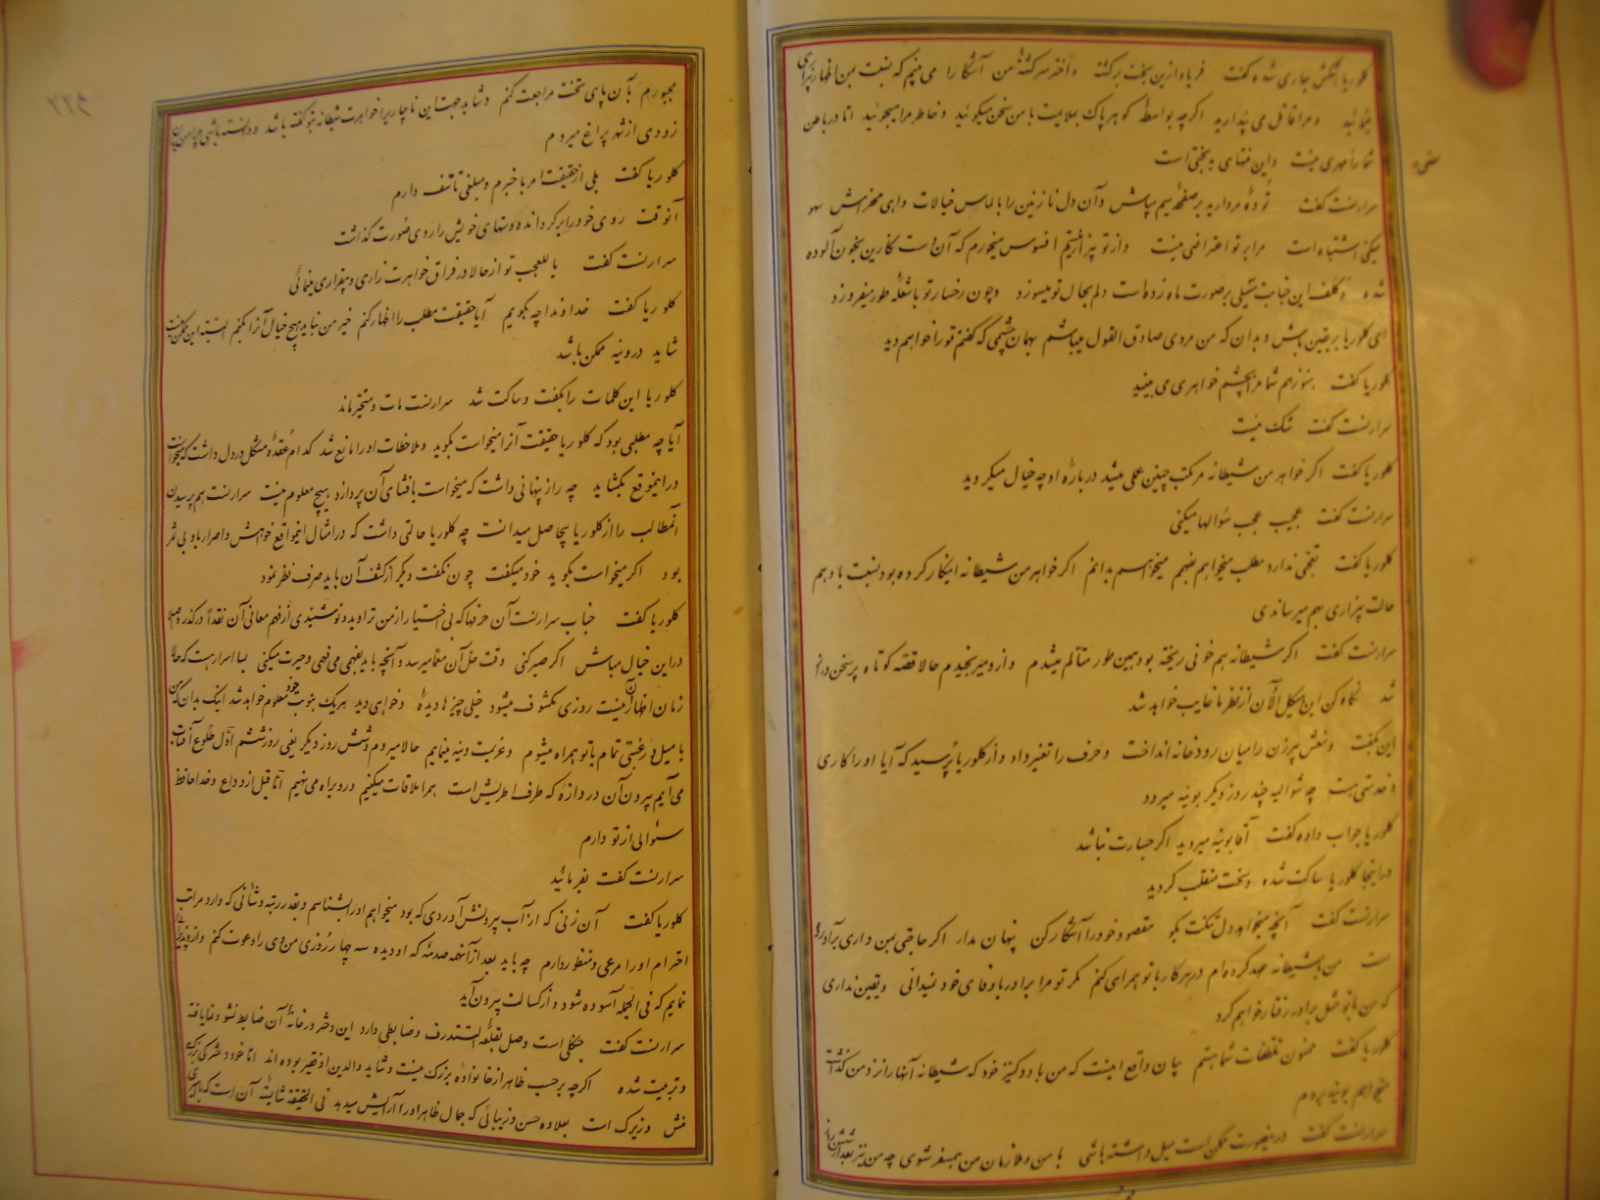 کلوریا اشکش جاری شده گفت فریاد ازین بخت برگشته و اختر سرگشتهٔ من آشکارا می‌بینم که نسبت بمن اظهار بیزاری
مینمائید و مرا قاتل می پندارید اگرچه بواسطهٔ گوهر پاک بملایمت با من سخن میگوئید و خاطر مرا میجوئید اما در باطن
شما را مهری نیست و این منتهای بدبختی است
سرارنست گفت تودهٔ مروارید بر صفحهٔ سیم مپاش و آن دل نازنین را بالماس خیالات واهی مخراش سهو
میکنی اشتباه است مرا بر تو اعتراضی نیست و از تو بیزار نیستم افسوس میخورم که آن دست نگارین بخون آلوده
شده و کلف این خیانت بر صورت ماه زده است دلم بحال تو میسوزد و چون رخسار تو با شعله طور میفروزد
ای کلوریا بر یقین باش و بدان که من مردی صادق القول میباشم بهمان چشمی که گفتم تو را خواهم دید
کلوریا گفت هنوز هم شما مرا بچشم خواهری می بینید
سرارنست گفت شک نیست
کلوریا گفت اگر خواهر من شیطانه مرتکب چنین عملی میشد درباره او چه خیال میکردید
سرارنست گفت عجیب عجب سؤالها میکنی
کلوریا گفت تعجبی ندارد مطلب میخواهم بفهمم میخواهم بدانم اگر خواهر من شیطانه اینکار کرده بود نسبت باو هم
حالت بیزاری بهم میرساندی
سرارنست گفت اگر شیطانه هم خونی ریخته بود همین طور متالم میشدم و از او میرنجیدم حالا قصه کوتاه پر سخن دراز
شد نگاه کن این هیکل الآن از نظر ما غایب خواهد شد
این بگفت و نعش پیرزن را میان رودخانه انداخت و حرف را تغییر داد و از کلوریا پرسید که آیا او را کاری
و خدمتی هست چه شوالیه چند روز دیگر بونیه میرود
کلوریا جواب داده گفت آقا بونیه میروید اگر جسارت نباشد
در اینجا کلوریا ساکت شده و سخت منقلب گردید
سرارنست گفت آنچه میخواهد دل تنگت بگو مقصود خود را آشکار کن پنهان مدار اگر حاجتی بمن داری برآورده
است من بشیطانه عهد کرده‌ام در هر کار با تو همراهی کنم مگر تو مرا برادر با وفای خود نمیدانی و یقین نداری
که من با تو مثل برادر رفتار خواهم کرد
کلوریا گفت ممنون تلطفات شما هستم بیان واقع اینست که من با دو کنیز خود که شیطانه آنها را نزد من گذاشت
میخواهم بونیه بروم
سرارنست گفت در اینصورت ممکن است میل داشته باشی با من و ملازمان من همسفر شوی چه من نیز بعد از شش روز
مجبورم بآن پای تخت مراجعت کنم و شاید جهت این ناچاری را خواهرت شیطانه بتو گفته باشد و دانسته باشی چرا من باین
زودی از شهر پراغ میروم
کلوریا گفت بلی از حقیقت امر با خبرم و مبلغی تأسف دارم
آنوقت روی خود را برگردانده و دستهای خویش را روی صورت گذاشت
سرارنست گفت یا للعجب تو از حالا در فراق خواهرت زاری و بیقراری مینمائی
کلوریا گفت خداوندا چه بگویم آیا حقیقت مطلب را اظهار کنم خیر من نباید هیچ خیال آنرا بکنم البته این ممکن نیست
شاید در وینه ممکن باشد
کلوریا این کلمات را بگفت و ساکت شد سرارنست مات و متحیر ماند
آیا چه مطلبی بود که کلوریا حقیقت آنرا میخواست بگوید و ملاحظات او را مانع شد کدام عقدهٔ مشکل در دل داشت که میخواست
در اینموقع بگشاید چه راز پنهانی داشت که میخواست بافشای آن پردازد هیچ معلوم نیست سرارنست هم پرسیدن
آنمطالب را از کلوریا بیحاصل میدانست چه کلوریا حالتی داشت که در امثال اینمواقع خواهش و اصرار باو بی ثمر
بود اگر میخواست بگوید خود میگفت چون نگفت دیگر از کشف آن باید صرف نظر نمود
کلوریا گفت جناب سرارنست آن حرفها که بی اختیار از من تراوید و تو شنیدی از فهم معانی آن نقداً درگذر و اصلا
در این خیال مباش اگر صبر کنی وقت حل آن معما میرسد و آنچه باید بفهمی می فهمی و حیرت میکنی بسا اسرار هست که حالا
زمان اظهار آن نیست روزی مکشوف میشود خیلی چیزها دیدهٔ و خواهی دید هر یک بنوبت خود معلوم خواهد شد اینک بدان که من
با میل و رغبتی تمام با تو همراه میشوم و عزیمت وینه مینمایم حالا میروم و شش روز دیگر یعنی روز ششم اول طلوع آفتاب
می آیم بیرون آن دروازه که طرف اطریش است همرا ملاقات میکنیم و رو براه می نهیم اما قبل از وداع و خداحافظ
سئوالی از تو دارم
سرارنست گفت بفرمائید
کلوریا گفت آن زنی که از آب بیرونش آوردی که بود میخواهم او را بشناسم و بقدر رتبه و شأنی که دارد مراتب
احترام او را مرعی و منظور دارم چه باید بعد از آنهمه صدمهٔ که او دیده سه چهار روزی من وی را دعوت کنم و از او پذیرائی
نمایم که فی الجمله آسوده شود و از کسالت بیرون آید
سرارنست گفت جنگلی است وصل بقلعهٔ التندرف و ضابطی دارد این دختر در خانهٔ آن ضابط نشو و نما یافته
و تربیت شده اگرچه بر حسب ظاهر از خانوادهٔ بزرگ نیست و شاید والدین او فقیر بوده اند اما خود دختر کی بزرگ
منش و زیرک است بعلاوه حسن و زیبائی که جمال ظاهر او را آرایش میدهد فی الحقیقه شایسته آن است که